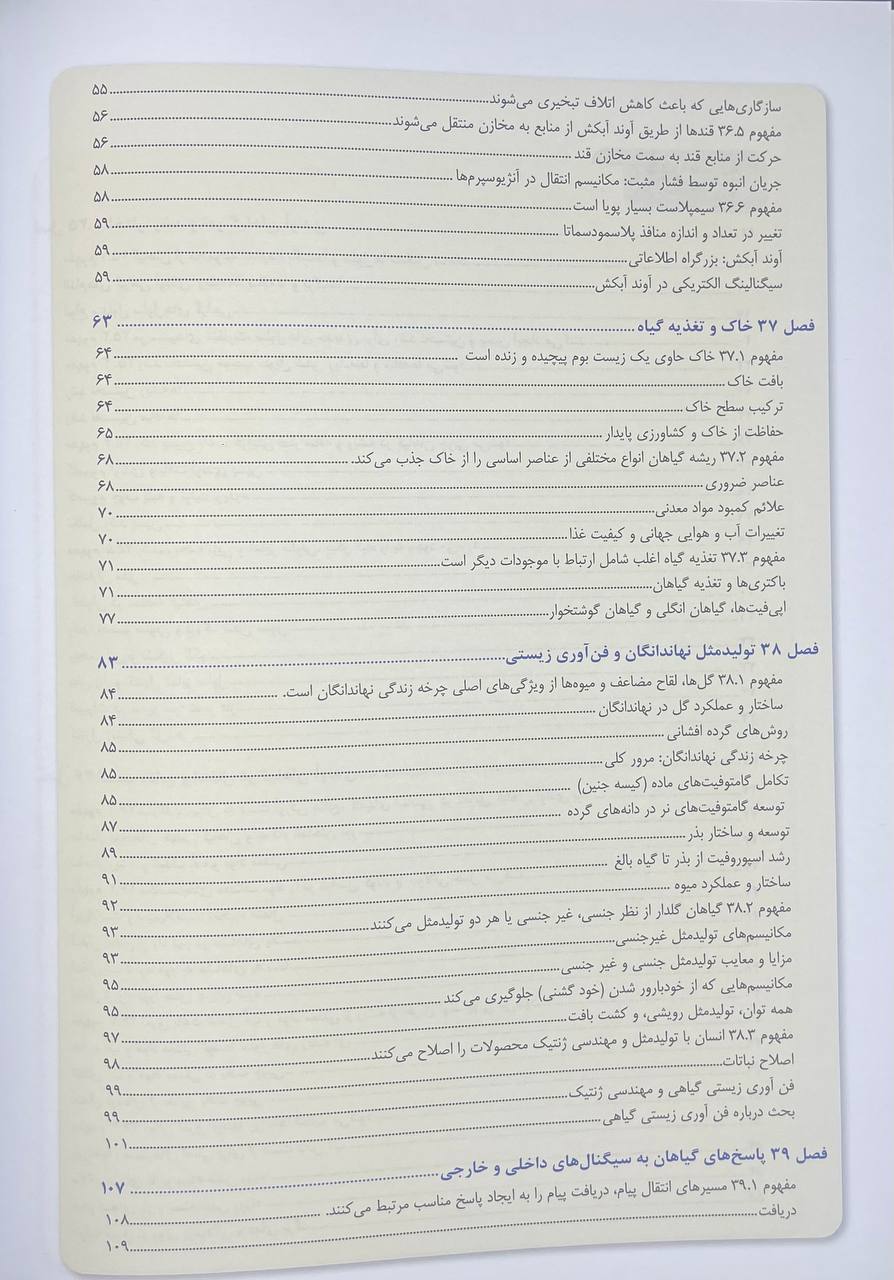 سازگاری‌هایی که باعث کاهش اتلاف تبخیری می‌شوند ........ ۵۵
مفهوم ۳۶.۵ قندها از طریق آوند آبکش از منابع به مخازن منتقل می‌شوند ........ ۵۶
حرکت از منابع قند به سمت مخازن قند ........ ۵۶
جریان انبوه توسط فشار مثبت: مکانیسم انتقال در آنژیوسپرم‌ها ........ ۵۸
مفهوم ۳۶.۶ سیمپلاست بسیار پویا است ........ ۵۸
تغییر در تعداد و اندازه منافذ پلاسمودسماتا ........ ۵۹
آوند آبکش: بزرگراه اطلاعاتی ........ ۵۹
سیگنالینگ الکتریکی در آوند آبکش ........ ۵۹
فصل ۳۷ خاک و تغذیه گیاه ........ ۶۳
مفهوم ۳۷.۱ خاک حاوی یک زیست بوم پیچیده و زنده است ........ ۶۴
بافت خاک ........ ۶۴
ترکیب سطح خاک ........ ۶۴
حفاظت از خاک و کشاورزی پایدار ........ ۶۵
مفهوم ۳۷.۲ ریشه گیاهان انواع مختلفی از عناصر اساسی را از خاک جذب می‌کند. ........ ۶۸
عناصر ضروری ........ ۶۸
علائم کمبود مواد معدنی ........ ۷۰
تغییرات آب و هوایی جهانی و کیفیت غذا ........ ۷۰
مفهوم ۳۷.۳ تغذیه گیاه اغلب شامل ارتباط با موجودات دیگر است ........ ۷۱
باکتری‌ها و تغذیه گیاهان ........ ۷۱
اپی‌فیت‌ها، گیاهان انگلی و گیاهان گوشتخوار ........ ۷۷
فصل ۳۸ تولیدمثل نهاندانگان و فن‌آوری زیستی ........ ۸۳
مفهوم ۳۸.۱ گل‌ها، لقاح مضاعف و میوه‌ها از ویژگی‌های اصلی چرخه زندگی نهاندانگان است. ........ ۸۴
ساختار و عملکرد گل در نهاندانگان ........ ۸۴
روش‌های گرده افشانی ........ ۸۵
چرخه زندگی نهاندانگان: مرور کلی ........ ۸۵
تکامل گامتوفیت‌های ماده (کیسه جنین) ........ ۸۵
توسعه گامتوفیت‌های نر در دانه‌های گرده ........ ۸۷
توسعه و ساختار بذر ........ ۸۹
رشد اسپوروفیت از بذر تا گیاه بالغ ........ ۹۱
ساختار و عملکرد میوه ........ ۹۲
مفهوم ۳۸.۲ گیاهان گلدار از نظر جنسی، غیر جنسی یا هر دو تولیدمثل می‌کنند ........ ۹۳
مکانیسم‌های تولیدمثل غیرجنسی ........ ۹۳
مزایا و معایب تولیدمثل جنسی و غیر جنسی ........ ۹۵
مکانیسم‌هایی که از خودبارور شدن (خود گشنی) جلوگیری می‌کند ........ ۹۵
همه توان، تولیدمثل رویشی، و کشت بافت ........ ۹۷
مفهوم ۳۸.۳ انسان با تولیدمثل و مهندسی ژنتیک محصولات را اصلاح می‌کنند ........ ۹۸
اصلاح نباتات ........ ۹۹
فن آوری زیستی گیاهی و مهندسی ژنتیک ........ ۹۹
بحث درباره فن آوری زیستی گیاهی ........ ۱۰۱
فصل ۳۹ پاسخ‌های گیاهان به سیگنال‌های داخلی و خارجی ........ ۱۰۷
مفهوم ۳۹.۱ مسیرهای انتقال پیام، دریافت پیام را به ایجاد پاسخ مناسب مرتبط می‌کنند. ........ ۱۰۸
دریافت ........ ۱۰۹